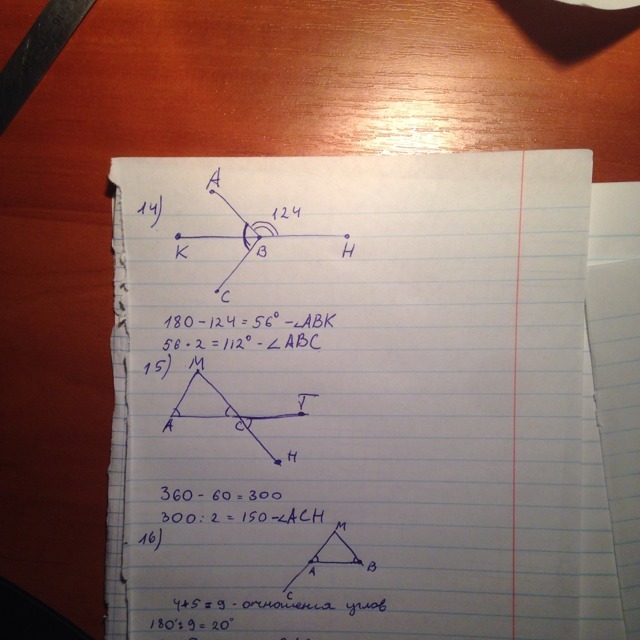 A
14)
124
K B H
C
180 - 124 = 56° - ∠ABK
56 · 2 = 112° - ∠ABC
15)
M
A C T
H
360 - 60 = 300
300 : 2 = 150 - ∠ACH
16)
M
A B
C
4+5=9 - отношения углов
180°:9=20°